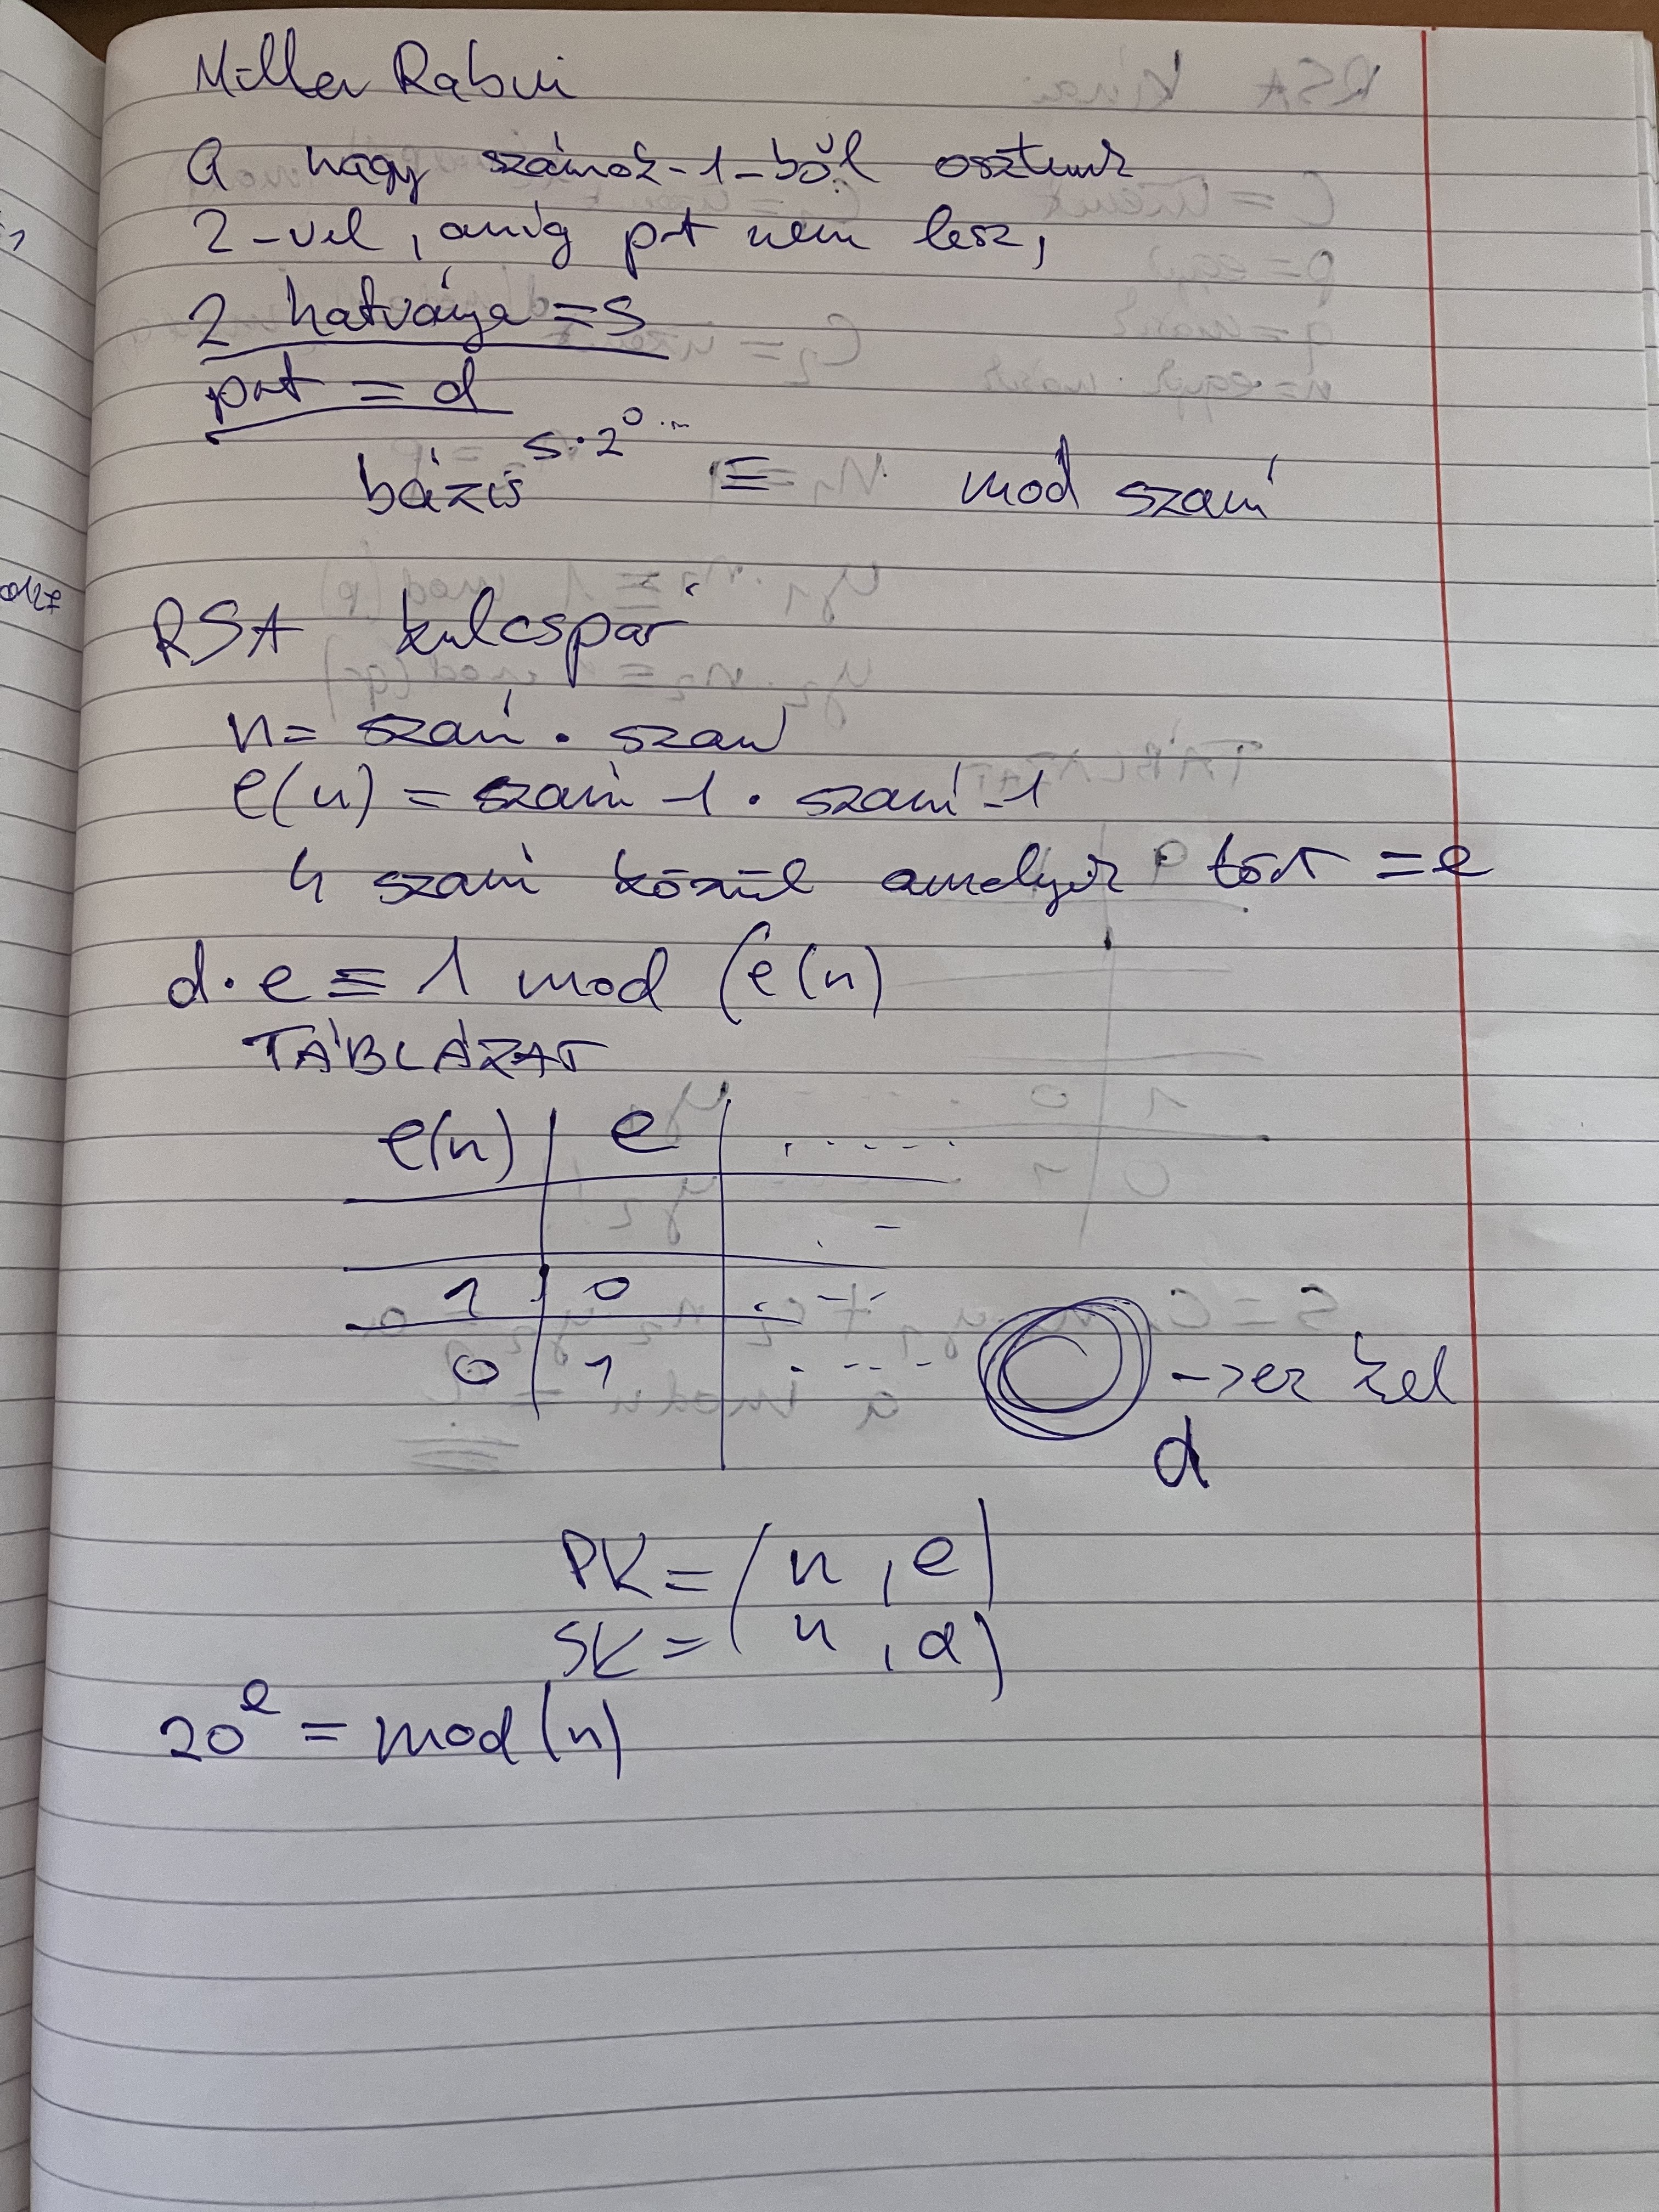 Miller Rabin
A nagy számok-1-ből osztunk
2-vel, amíg prt nem lesz,
2 hatványa = s
prt = d
bázis^s·2^0 ... ≡ mod szám
RSA kulcspár
n = szám · szám
e(n) = szám -1 · szám -1
4 szám közül amelyik tört = e
d · e ≡ 1 mod (e(n)
TÁBLÁZAT
e(n) | e | ......
1 | 0 | . ---
0 | 1 | . ---- -> ez kel
d
PK = (n, e)
SK = (n, d)
20^e = mod (n)